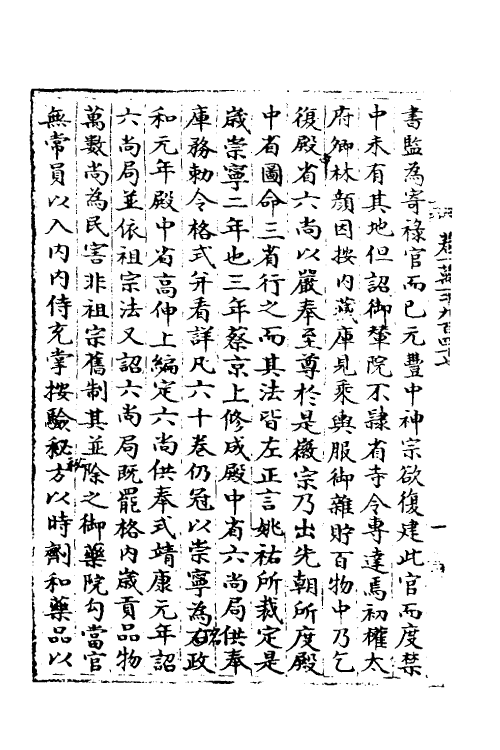 書監為寄禄官而已元豐中神宗欲復建此官而度禁
中未有其地但詔御輦院不隷省寺令專達焉初權太
府卿林顔因按内藏庫見乘輿服御雜貯百物中乃乞
復殿中省六尚以嚴奉至尊於是徽宗乃出先朝所度殿
中省圖命三省行之而其法皆左正言姚祐所裁定是
歲崇寧二年也三年蔡京上修成殿中省六尚局供奉
庫務勅令格式并看詳凡六十卷仍冠以崇寧為名政
和元年殿中省高伸上編定六尚供奉式靖康元年詔
六尚局並依祖宗法又詔六尚局既罷格内歲貢品物
萬數尚為民害非祖宗舊制其並除之御藥院勾當官
無常員以入内内侍充掌按驗秘方以時劑和藥品以
一